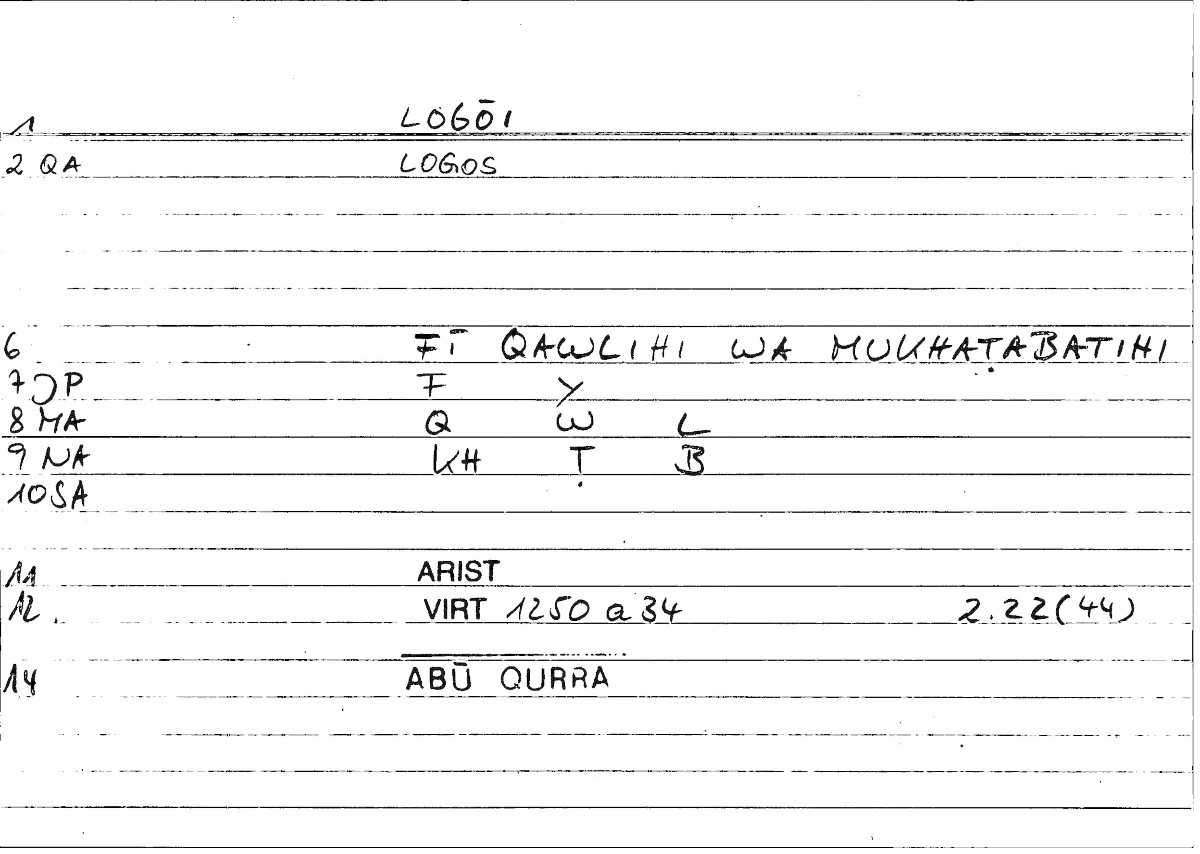 1 LOGŌI
2 QA LOGOS
6 FĪ QAWLIHI WA MUKHAṬABATIHI
7 JP F Y
8 MA Q W L
9 NA KH Ṭ B
10 SA
11 ARIST
12. VIRT 1250 a 34 2.22(44)
14 ABŪ QURRA